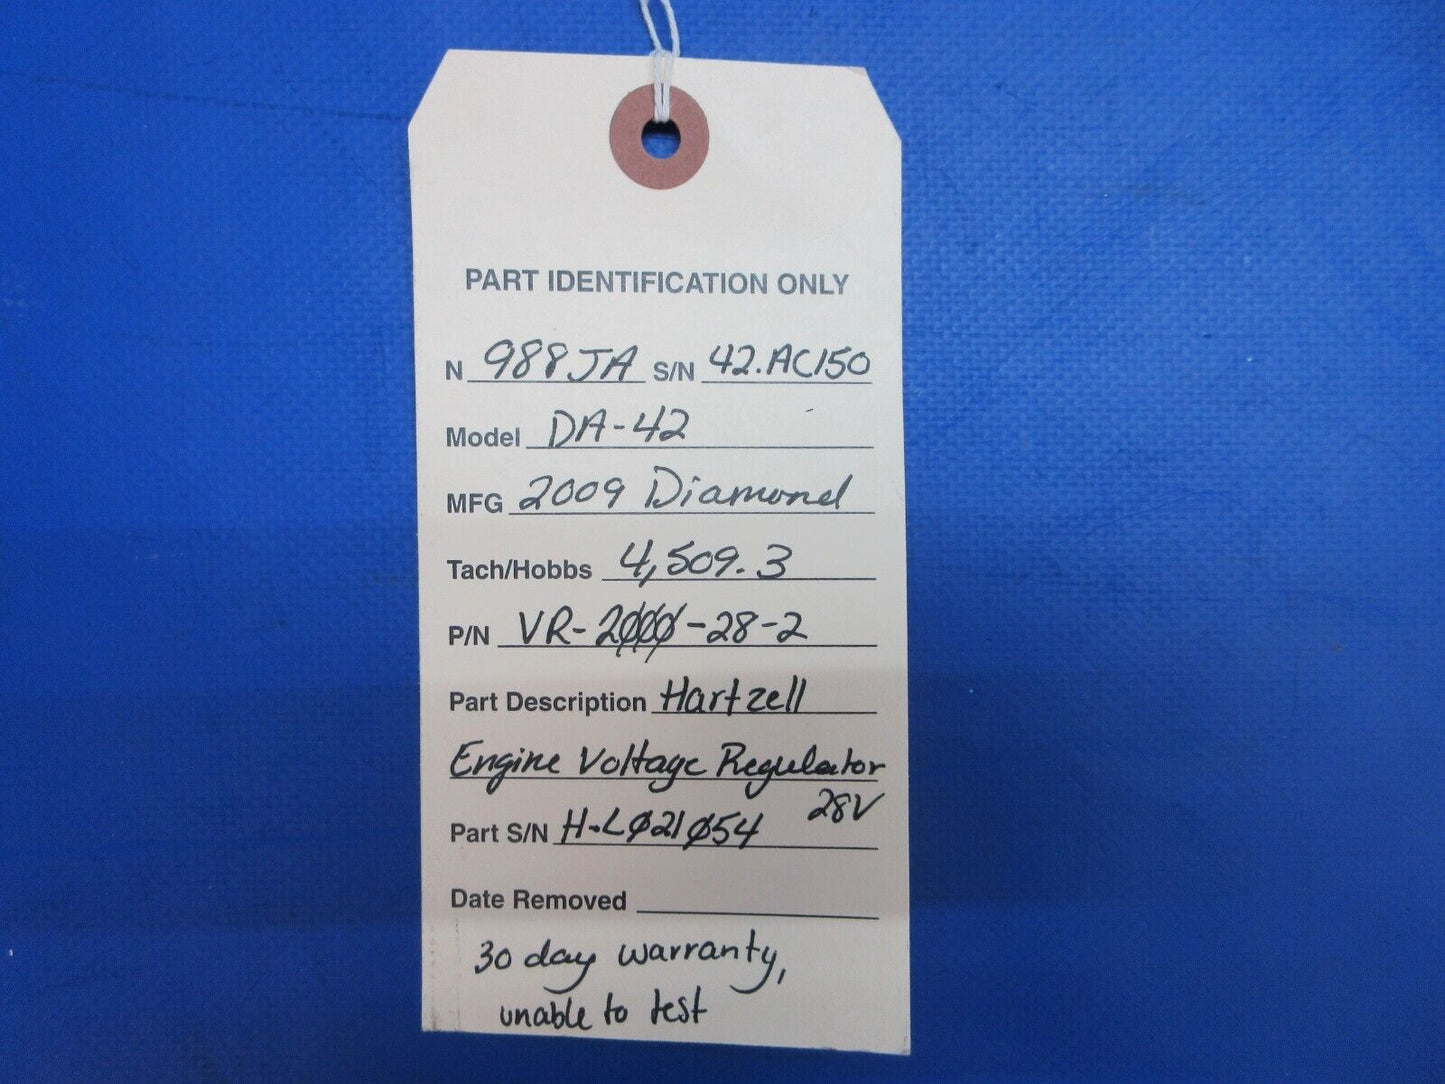 PART IDENTIFICATION ONLY
N 988JA S/N 42.AC150
Model DA-42
MFG 2009 Diamond
Tach/Hobbs 4,509.3
P/N VR-2000-28-2
Part Description Hartzell
Engine Voltage Regulator
28V
Part S/N H-L021054
Date Removed
30 day warranty,
unable to test